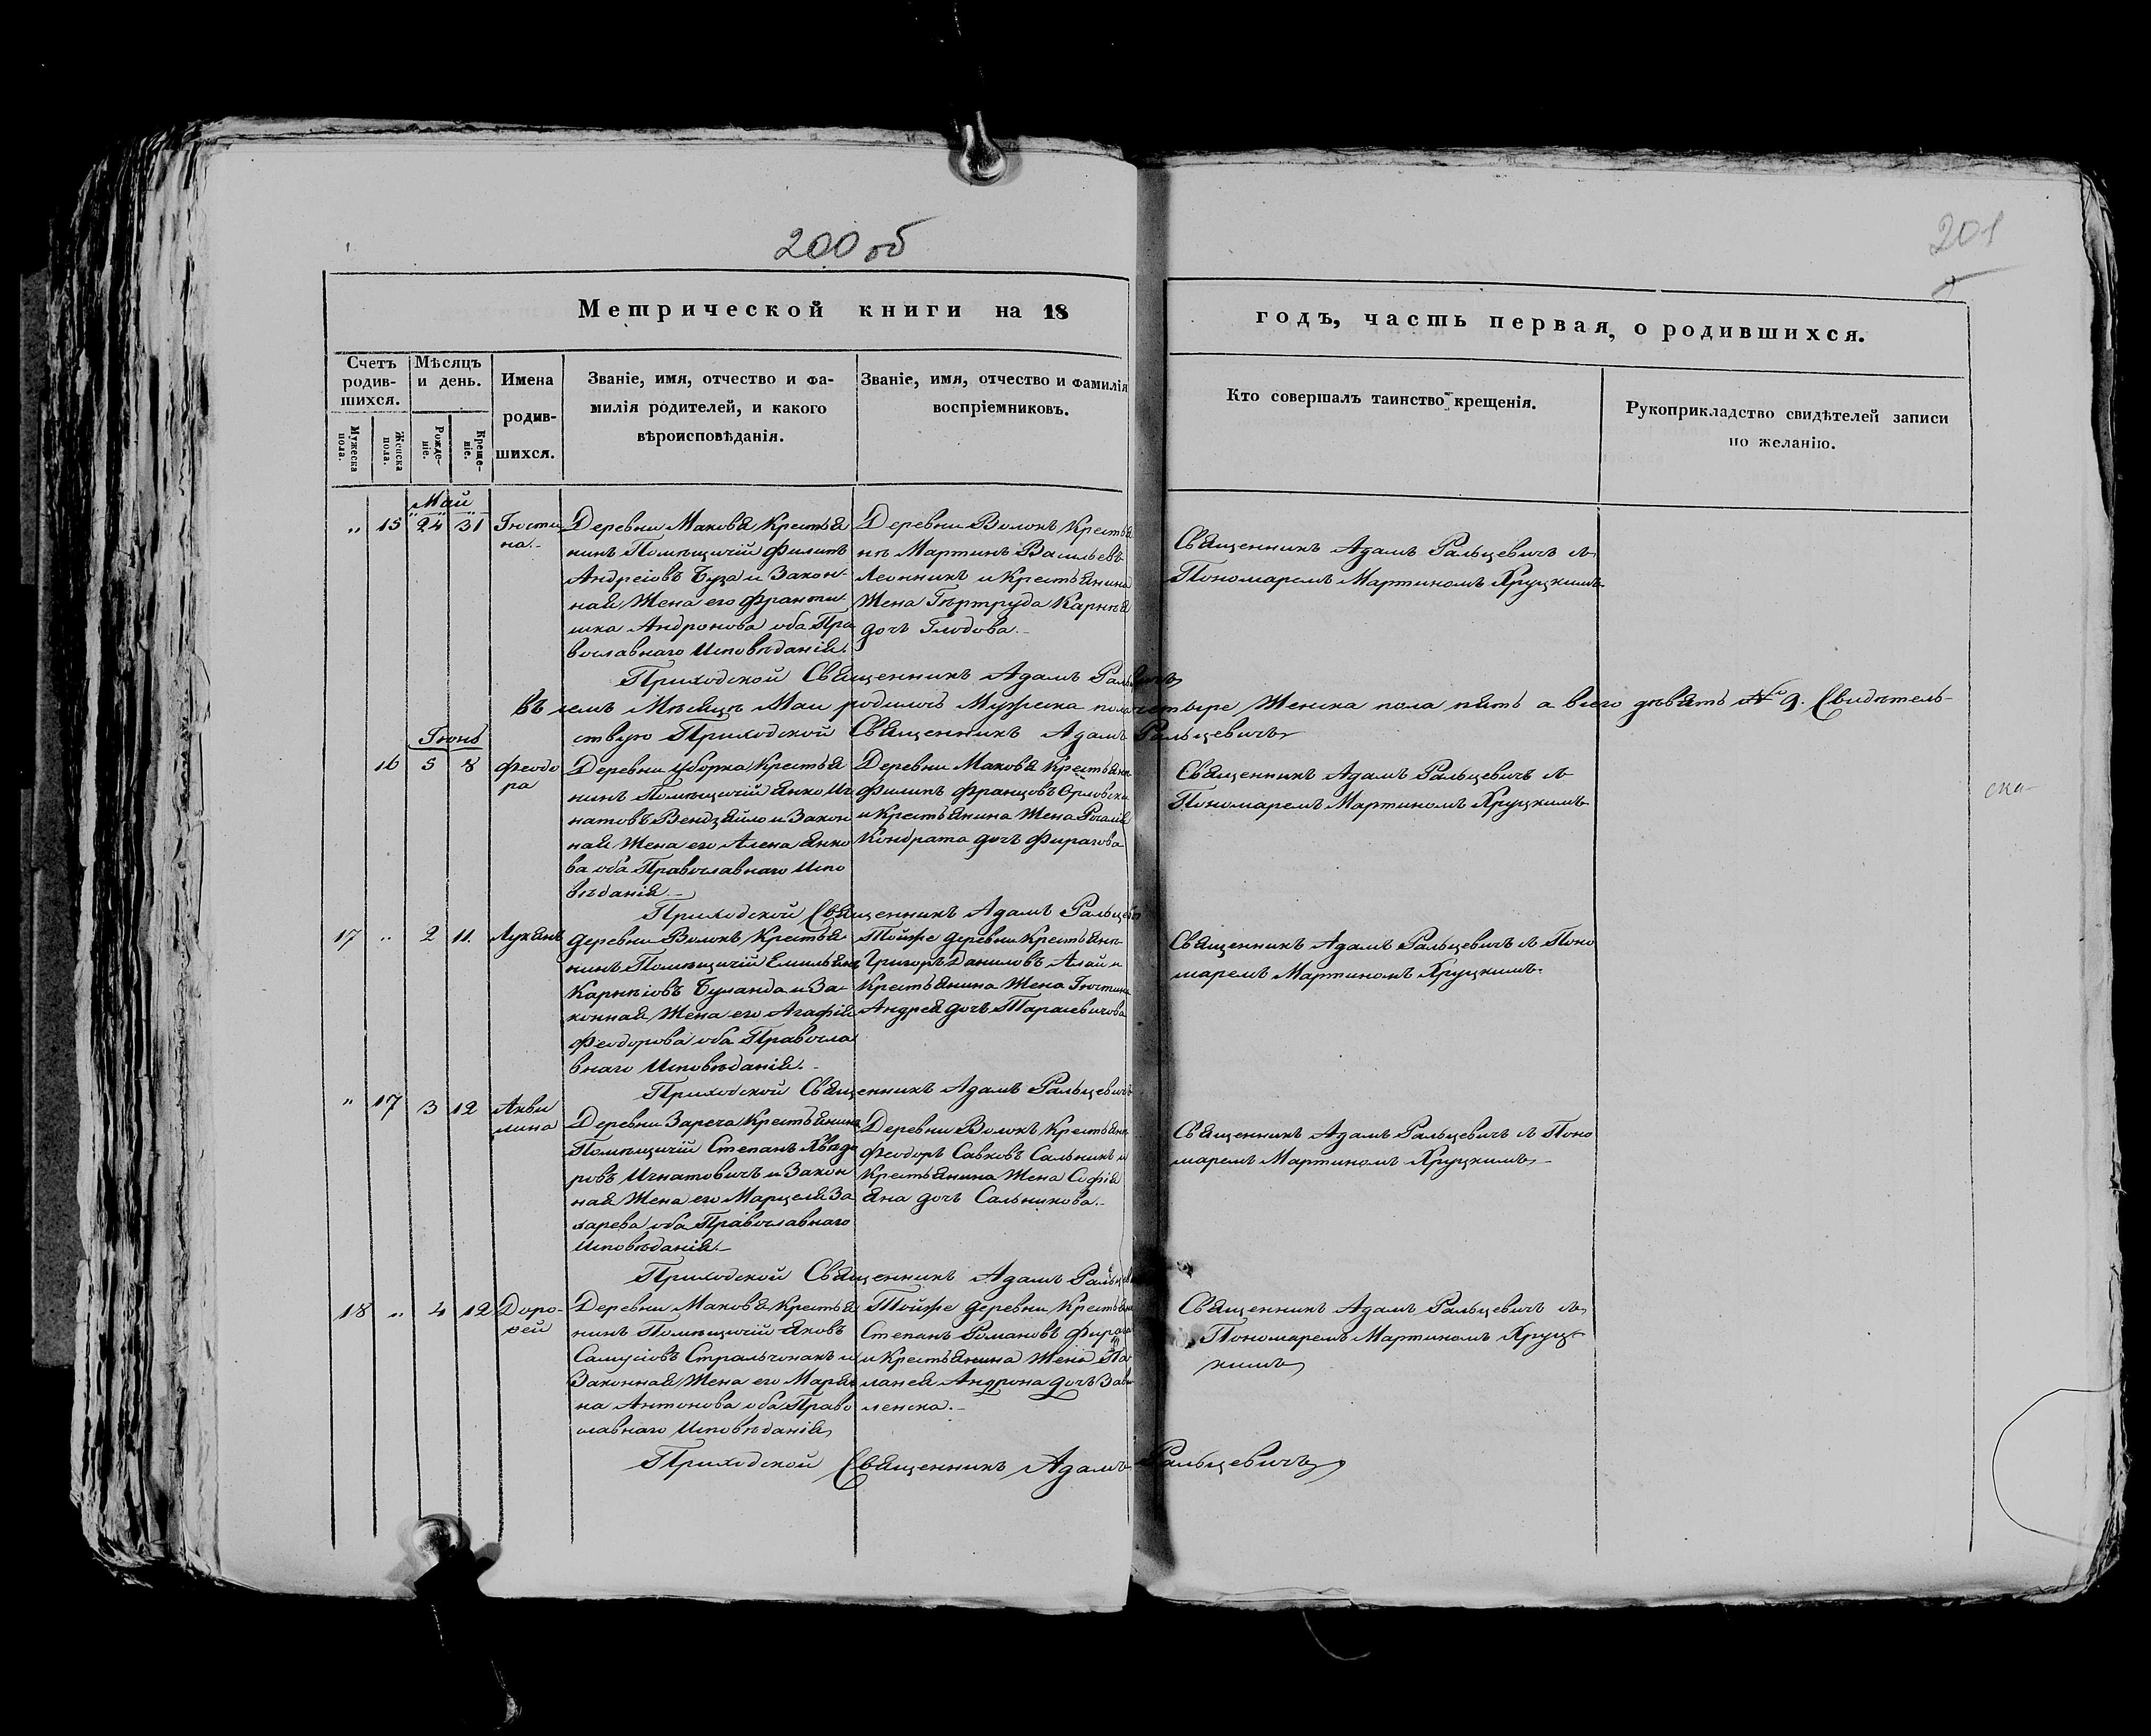 200 об
201
Метрической книги на 18
годъ, часть первая, о родившихся.
Счетъ родив-шихся.
Мужеска пола.
Женска пола.
Мѣсяцъ и день.
Рожде-ніе.
Креще-ніе.
Имена
родив-
шихся.
Званіе, имя, отчество и фа-
милія родителей, и какого
вѣроисповѣданія.
Званіе, имя, отчество и фамилія
воспріемниковъ.
Кто совершалъ таинство крещенія.
Рукоприкладство свидѣтелей записи
по желанію.
Май
„ 15 24 31
Іюсти
на.
Деревни Маковя Крестья
нинъ Помѣщичій Филипъ
Андреіовъ Буза и Закон-
ная Жена его Франти
шка Андронова оба Пра
вославнаго Исповѣданія.
Деревни Волокъ Крестья
нъ Мартинъ Васильевъ
Леонникъ и Крестьянина
Жена Гѣртруда Карнѣя
дочъ Глодова.
Священникъ Адамъ Ральцевичъ съ
Пономаремъ Мартиномъ Хруцкимъ
Приходской Священникъ Адамъ Ральцевичъ
Въ семъ Мѣсяцѣ Маи родилось Мужеска пола четыре Женска пола пять а всего девять № 9. Свидѣтель-
ствую Приходской Священникъ Адамъ Ральцевичъ
Іюнь
16 5 8
Феодо
ра
Деревни Уборка Крестья
нинъ Помѣщичій Янко Иг
натовъ Вендзяйло и Закон
ная Жена его Алена Янко
ва оба Православнаго Испо
вѣданія.
Деревни Маковя Крестьянин
Филипъ Францовъ Орловски
и Крестьянина Жена Рогалія
Кондрата дочъ Фирагова
Священникъ Адамъ Ральцевичъ съ
Пономаремъ Мартиномъ Хруцкимъ
ска-
Приходской Священникъ Адамъ Ральцевичъ
17 „ 2 11.
Лукянъ
Деревни Волокъ Крестья
нинъ Помѣщичій Емильянъ
Карнѣіовъ Буланда и За-
конная Жена его Агафія
Феодорова оба Правосла
внаго Исповѣданія.
Тойже деревни Крестьянн
Григоръ Даниловъ Алай и
Крестьянина Жена Іюстина
Андрея дочъ Тарасевичова
Священникъ Адамъ Ральцевичъ съ Поно
маремъ Мартиномъ Хруцкимъ.
Приходской Священникъ Адамъ Ральцевичъ
„ 17 3 12
Акви
лина
Деревни Зареча Крестьянинъ
Помѣщичій Степанъ Хвѣдо
ровъ Игнатовичъ и Закон
ная Жена его Марцеля За
харева оба Православнаго
Исповѣданія.
Деревни Волокъ Крестьянн
Феодоръ Савковъ Сальникъ и
Крестьянина Жена Софія
Яна дочъ Сальникова.
Священникъ Адамъ Ральцевичъ съ Поно
маремъ Мартиномъ Хруцкимъ
Приходской Священникъ Адамъ Ральцеви
18 „ 4 12
Доро-
фей
Деревни Маковя Крестья
нинъ Помѣщичій Яковъ
Самусіовъ Стральчонакъ и
Законная Жена его Марья
на Антонова оба Право
славнаго Исповѣданія
Тойже деревни Крестьяни
Степанъ Романовъ Фираго
и Крестьянина Жена Па
ланея Андрона дочъ Зави
ленска.
Священникъ Адамъ Ральцевичъ съ
Пономаремъ Мартиномъ Хруц-
кимъ
Приходской Священникъ Адамъ Ральцевичъ